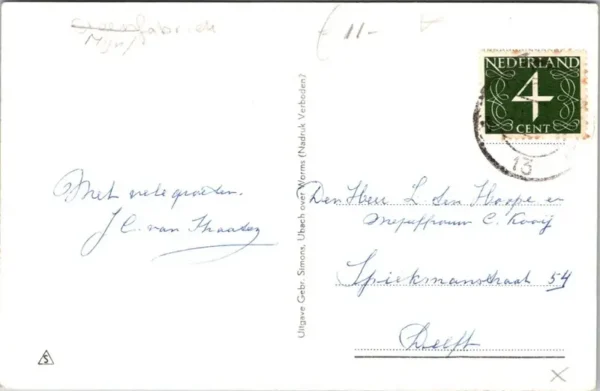 Steenfabriek
Mijn/
£ 11-
NEDERLAND
4
CENT
13
Met vele groeten.
J C. van Straaten
Uitgave Gebr. Simons, Ubach over Worms (Nadruk Verboden)
Den Heer L den Hoope en
Mejuffrouw C. Kooij
Spiekmanstraat 54
Delft
S
X